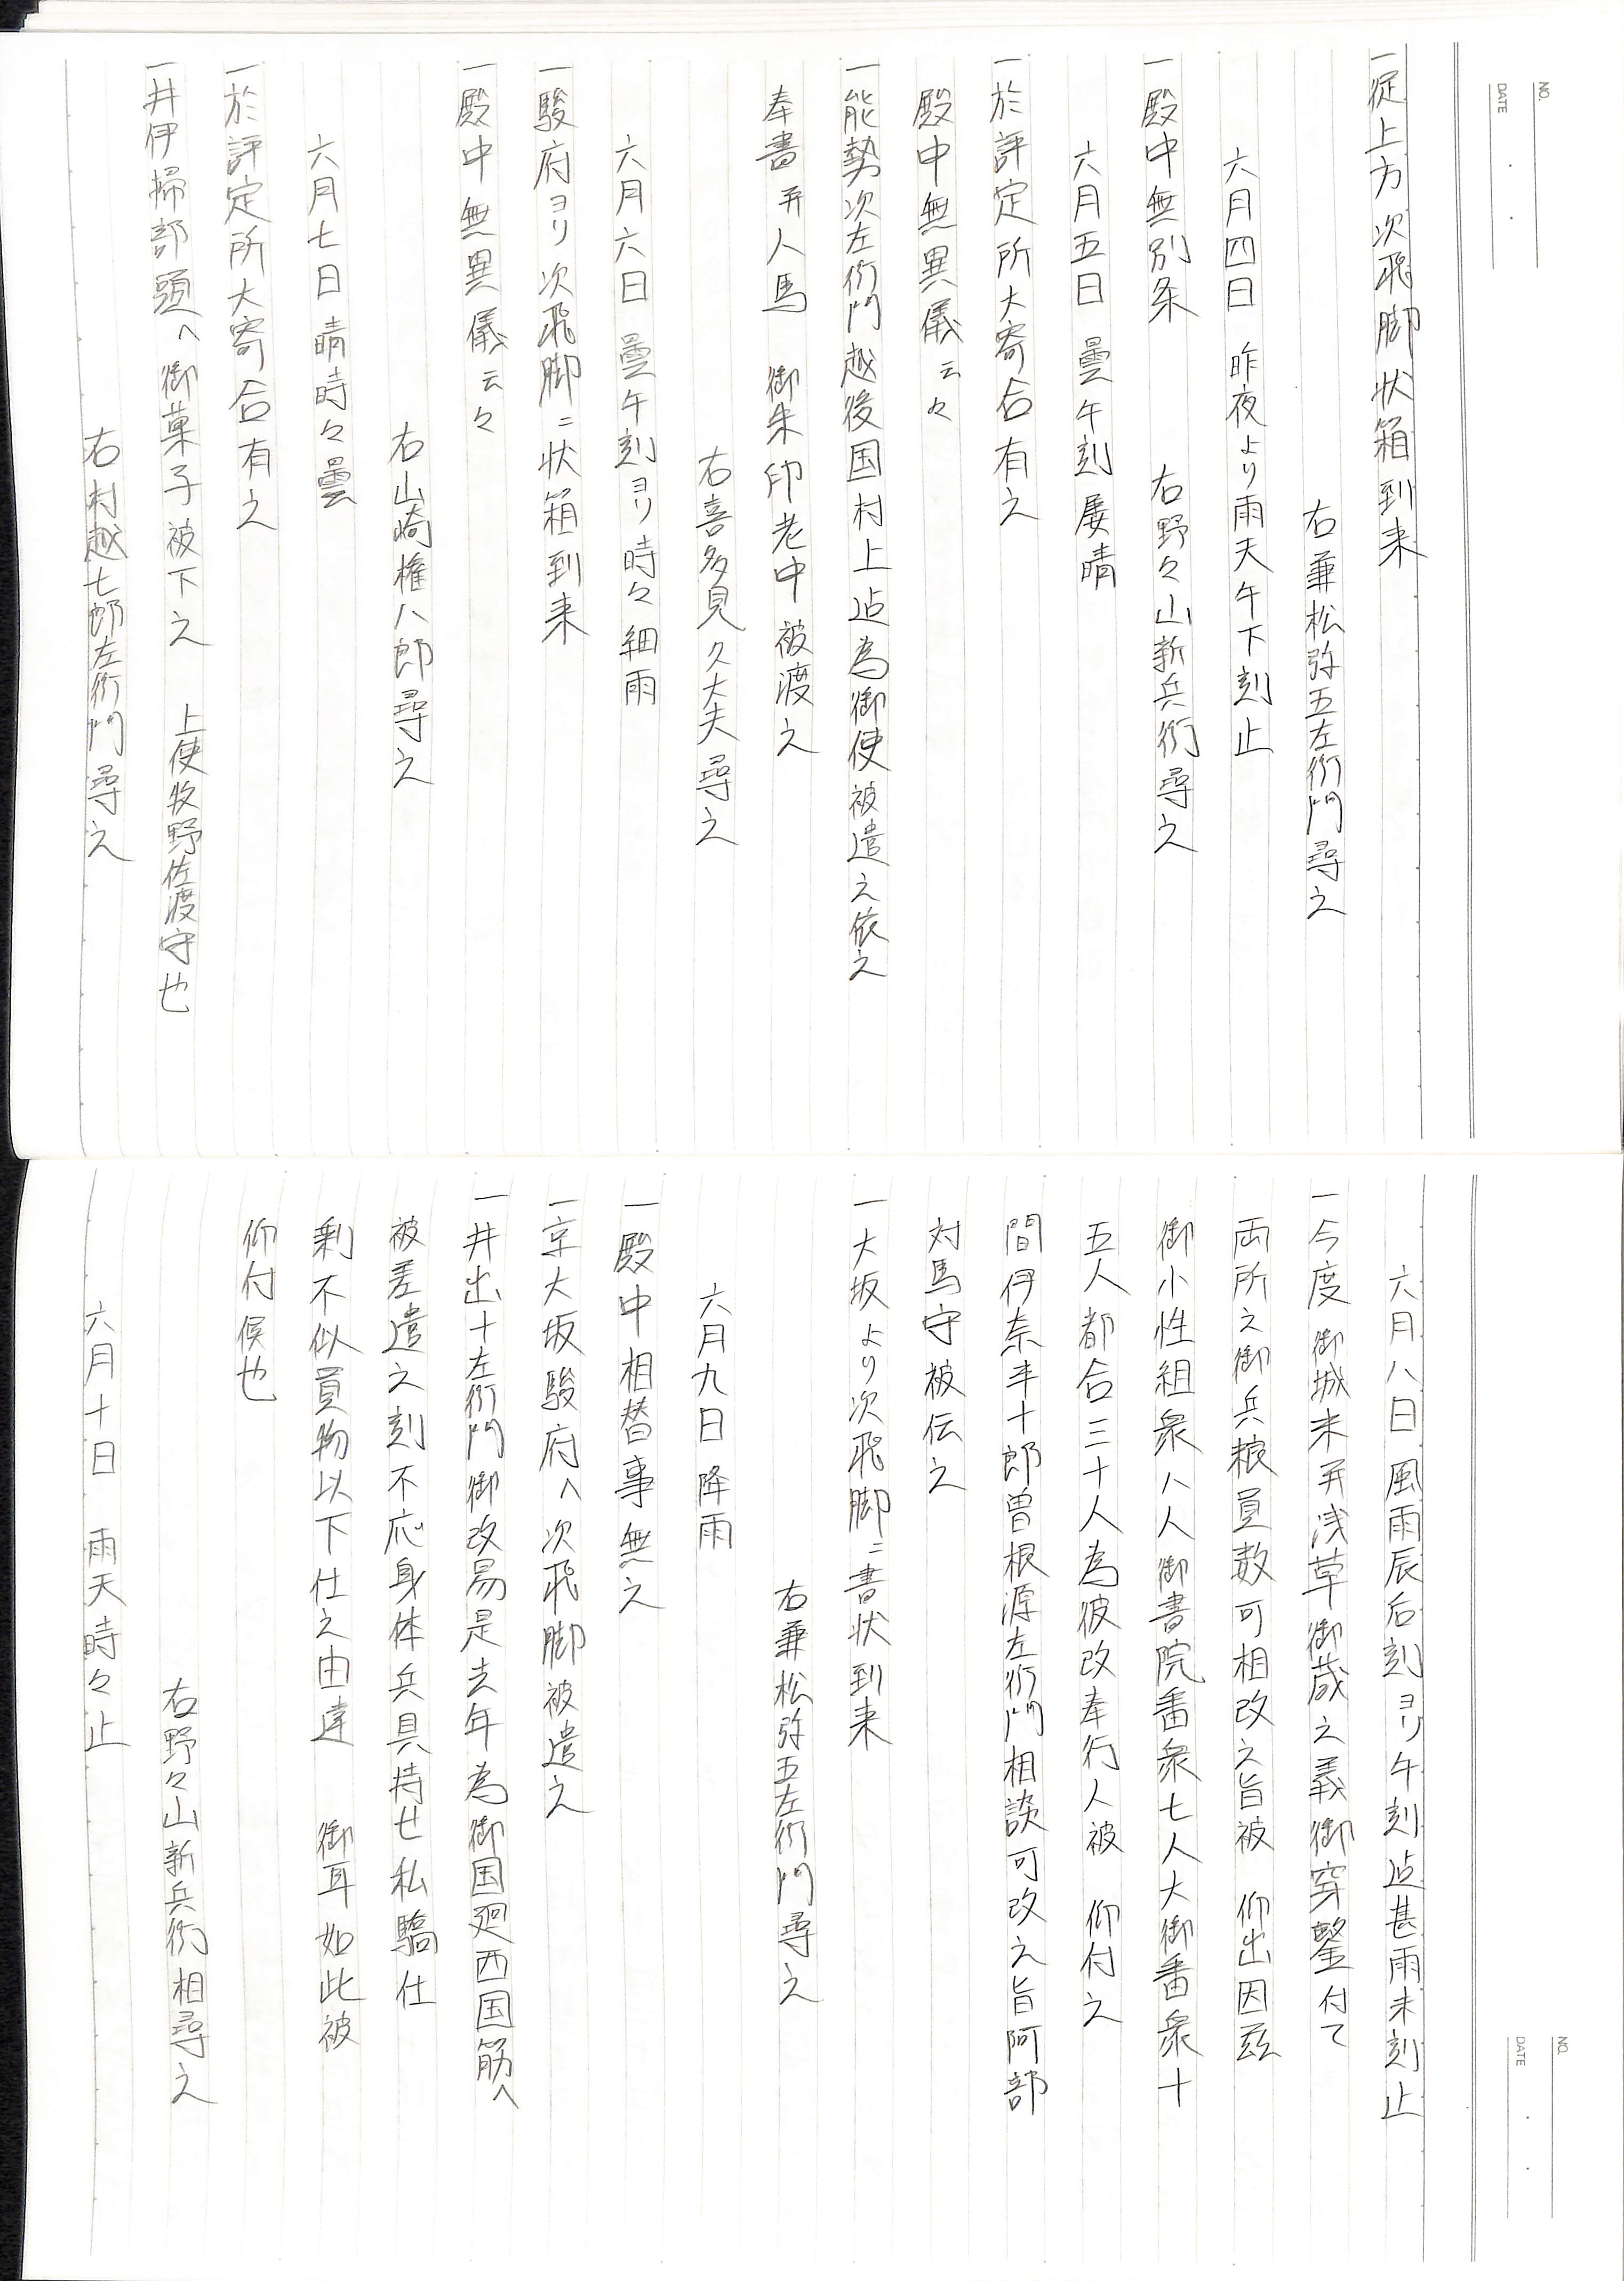 NO.
DATE
一従上方次飛脚状箱到来
右兼松弥五左衛門尋之
六月四日 昨夜より雨天午下刻止
一殿中無別条 右野々山新兵衛尋之
六月五日 曇午刻屡晴
一於評定所大寄合有之
殿中無異儀云々
一能勢次左衛門越後国村上迠為御使被遣之依之
奉書并人馬 御朱印老中被渡之
右喜多見久大夫尋之
六月六日 曇午刻ヨリ時々細雨
一駿府ヨリ次飛脚ニ状箱到来
一殿中無異儀云々
右山崎権八郎尋之
六月七日 晴時々曇
一於評定所大寄合有之
一井伊掃部頭へ御菓子被下之 上使牧野佐渡守也
右村越七郎左衛門尋之
NO.
DATE
六月八日 風雨辰后刻ヨリ午刻迠甚雨未刻止
一今度 御城米并浅草御蔵之義御穿鑿付て
両所之御兵粮員数可相改之旨被 仰出因茲
御小性組衆八人御書院番衆七人大御番衆十
五人都合三十人為彼改奉行人被 仰付之
間伊奈半十郎曽根源左衛門相談可改之旨阿部
対馬守被伝之
一大坂より次飛脚ニ書状到来
右兼松弥五左衛門尋之
六月九日 降雨
一殿中相替事無之
一京大坂駿府へ次飛脚被遣之
一井出十左衛門御改易是去年為御国廻西国筋へ
被差遣之刻不応身体兵具持せ私驕仕
剰不似買物以下仕之由達 御耳如此被
仰付候也
右野々山新兵衛相尋之
六月十日 雨天時々止